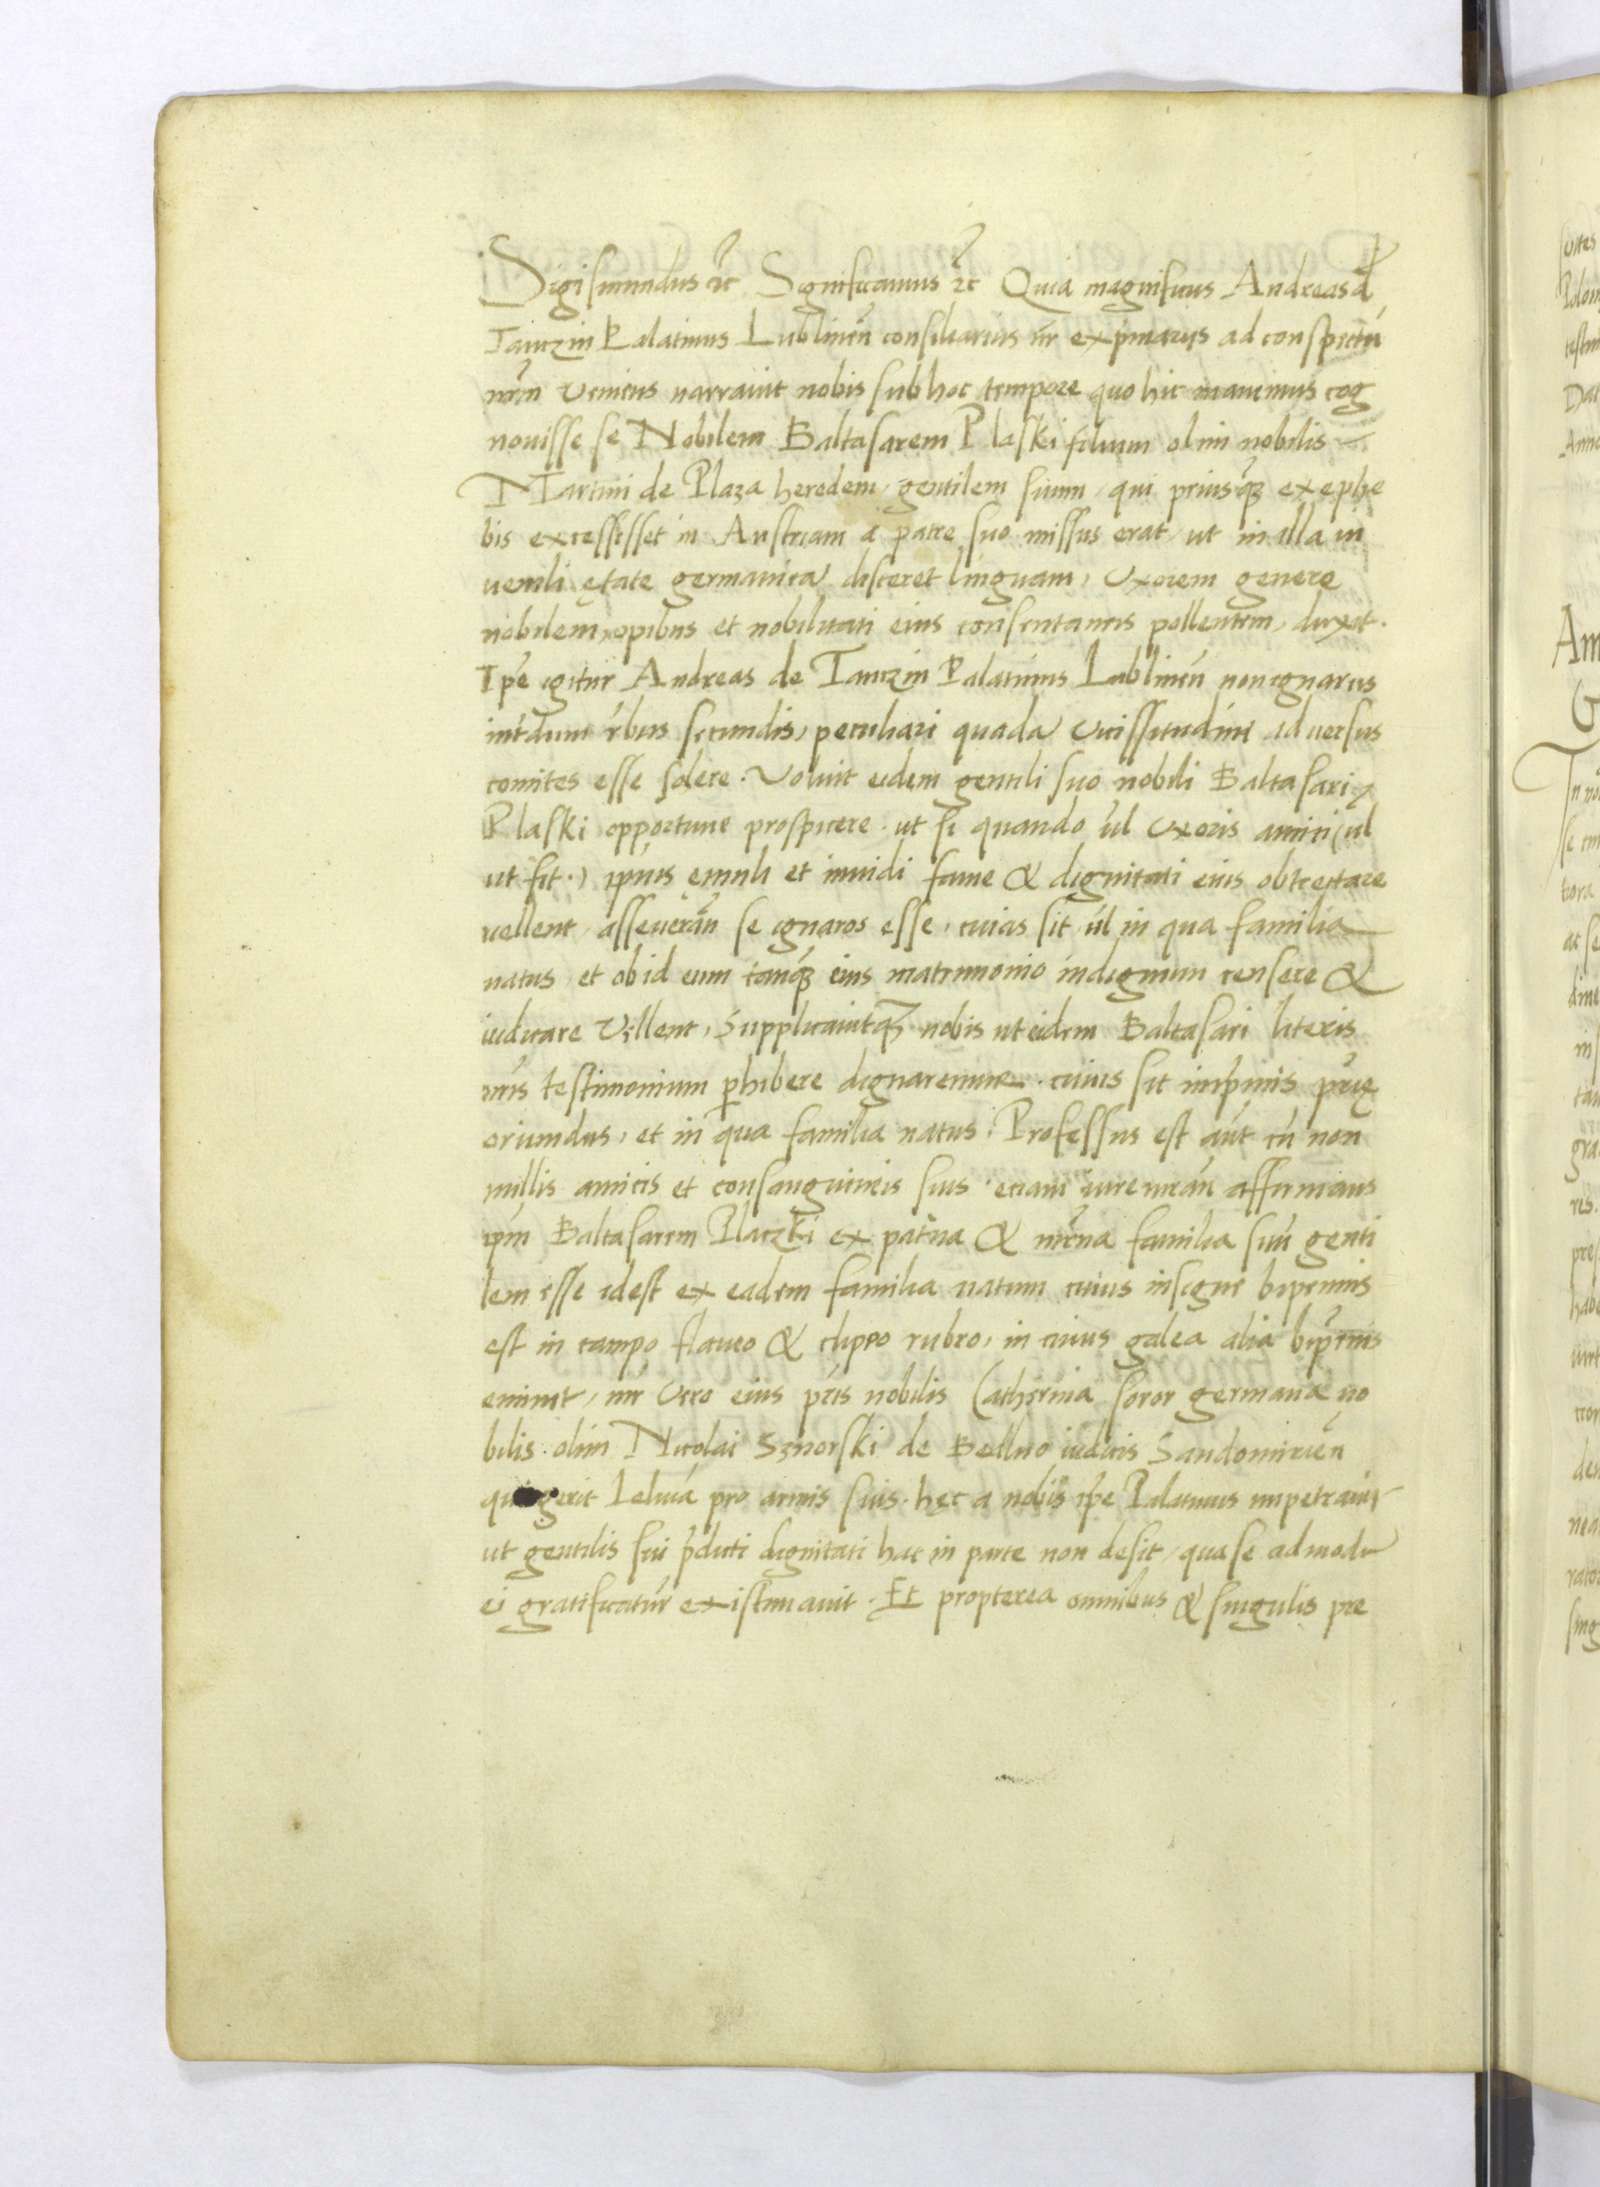 Sigismundus etc Significamus etc Quia magnificus Andreas de
Tanczin Palatinus Lublineñ consiliarius nr̃ ex primariis ad conspectũ
nrm̃ veniens narravit nobis sub hoc tempore quo hic manemus cog
novisse se Nobilem Baltasarem Plaski filium olim nobilis
Martini de Plaza heredem, gentilem suum, qui priusq̃ ex ephe
bis excessisset in Austriam a patre suo missus erat, ut in illa iu
venili ętate germanicã disceret linguam, Uxorem genere
nobilem, opibus et nobilitati eius consentaneis pollentem, duxit.
Ip̃e igitur Andreas de Tanczin Palatinus Lublineñ non ignarus
int̃dum r̃bus secundis, peculiari quadã vicissitudine adversus
comites esse solere. Voluit eidem gentili suo nobili Baltasari
Plaski opportune prospicere, ut si quando vl̃ uxoris amici (vl̃
ut fit.) ip̃ius ęmuli et invidi fame & dignitati eius obtrectare
vellent, asseverañ se ignaros esse, cuias sit, vl̃ in qua familia
natus, et ob id eum tanq̃ eius matrimonio indignum censere &
iudicare vellent, Supplicavitq̃ nobis ut eidem Baltasari literis
nr̃is testimonium perhibere dignaremur, cuius sit inprimis pr̃ię
oriundus, et in qua familia natus. Professus est aut̃ cũ non
nullis amicis et consanguineis suis, etiam iureiurañ affirmans
ip̃m Baltasarem Placzki ex pat̃na & mat̃na familia suũ genti
lem esse idest ex eadem familia natum cuius insigne bipennis
est in campo flaveo & clipeo rubro, in cuius galea alia bipennis
eminet, mr̃ vero eius pr̃is nobilis Catherina soror germana no
bilis olim Nicolai Sznorski de Bedlno iudicis Sandomirieñ
qui gerit Leliwã pro armis suis. hęc a nobis ip̃e Palatinus impetravit
ut gentilis sui p̃dicti dignitati hac in parte non desit, qua se admodũ
ei gratificatur̃ existimavit. Et propterea omnibus & singulis pre